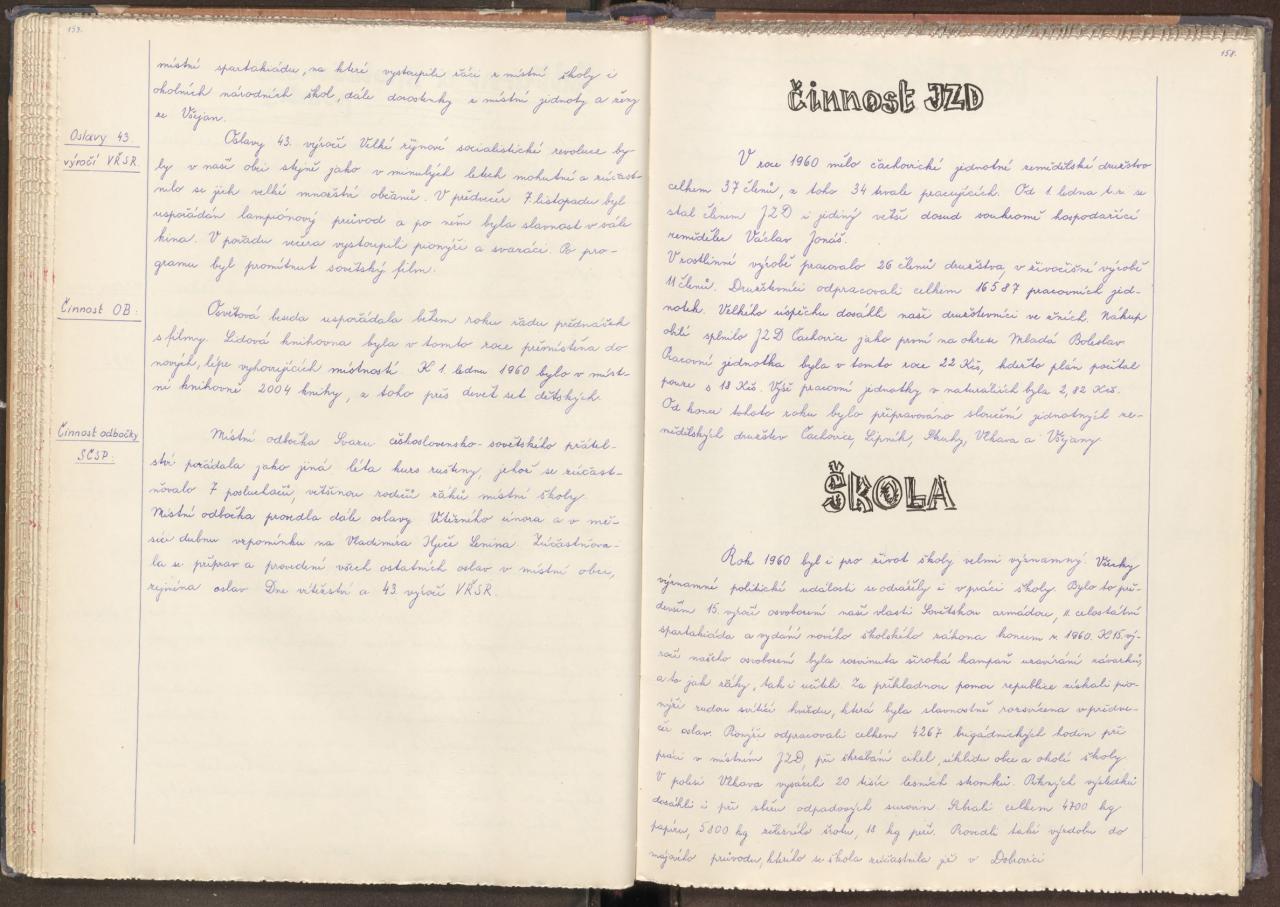 157.
místní spartakiádu, na které vystoupili žáci z místní školy i
okolních národních škol, dále dorostenky z místní jednoty a ženy
ze Všejan.
Oslavy 43.
výročí VŘSR.
Oslavy 43. výročí Velké říjnové socialistické revoluce by-
ly v naší obci stejně jako v minulých letech mohutné a zúčast-
nilo se jich velké množství občanů. V předvečer 7. listopadu byl
uspořádán lampionový průvod a po něm byla slavnost v sále
kina. V pořadu večera vystoupili pionýři a svazáci. Po pro-
gramu byl promítnut sovětský film.
Činnost OB:
Osvětová beseda uspořádala během roku řadu přednášek
s filmy. Lidová knihovna byla v tomto roce přemístěna do
nových, lépe vyhovujících místností. K 1. lednu 1960 bylo v míst-
ní knihovně 2004 knihy, z toho přes devět set dětských.
Činnost odbočky
SČSP:
Místní odbočka Svazu československo-sovětského přátel-
ství pořádala jako jiná léta kurs ruštiny, jehož se zúčast-
ňovalo 7 posluchačů, většinou rodičů žáků místní školy.
Místní odbočka provedla dále oslavy Vítězného února a v mě-
síci dubnu vzpomínku na Vladimíra Iljiče Lenina. Zúčastňova-
la se příprav a provedení všech ostatních oslav v místní obci,
zejména oslav Dne vítězství a 43. výročí VŘSR.
158.
činnost JZD
V roce 1960 mělo čachovické jednotné zemědělské družstvo
celkem 37 členů, z toho 34 trvale pracujících. Od 1. ledna t.r. se
stal členem JZD i jediný větší dosud soukromě hospodařící
zemědělec Václav Jonáš.
V rostlinné výrobě pracovalo 26 členů družstva, v živočišné výrobě
11 členů. Družstevníci odpracovali celkem 16587 pracovních jed-
notek. Velkého úspěchu dosáhli naši družstevníci ve žních. Nákup
obilí splnilo JZD Čachovice jako první na okrese Mladá Boleslav
Pracovní jednotka byla v tomto roce 22 Kčs, kdežto plán počítal
pouze s 18 Kčs. Výše pracovní jednotky v naturáliích byla 2,82 Kčs.
Od konce tohoto roku bylo připravováno sloučení jednotných ze-
mědělských družstev Čachovice, Lipník, Struhy, Vlkava a Všejany
ŠKOLA
Rok 1960 byl i pro život školy velmi významný. Všechny
významné politické události se odrážely i v práci školy. Bylo to pře-
devším 15. výročí osvobození naší vlasti Sovětskou armádou, II. celostátní
spartakiáda a vydání nového školského zákona koncem r. 1960. K 15. vý-
ročí našeho osvobození byla rozvinuta široká kampaň uzavírání závazků,
a to jak žáky, tak i učiteli. Za příkladnou pomoc republice získali pio-
nýři rudou svítící hvězdu, která byla slavnostně rozsvícena v předve-
čer oslav. Pionýři odpracovali celkem 4267 brigádnických hodin při
práci v místním JZD, při škrabání cihel, úklidu obce a okolí školy
V polesí Vlkava vysázeli 20 tisíc lesních stromků. Pěkných výsledků
dosáhli i při sběru odpadových surovin. Sebrali celkem 4700 kg
papíru, 5800 kg železného šrotu, 18 kg peří. Provedli také výzdobu do
májového průvodu, kterého se škola zúčastnila již v Dobrovici